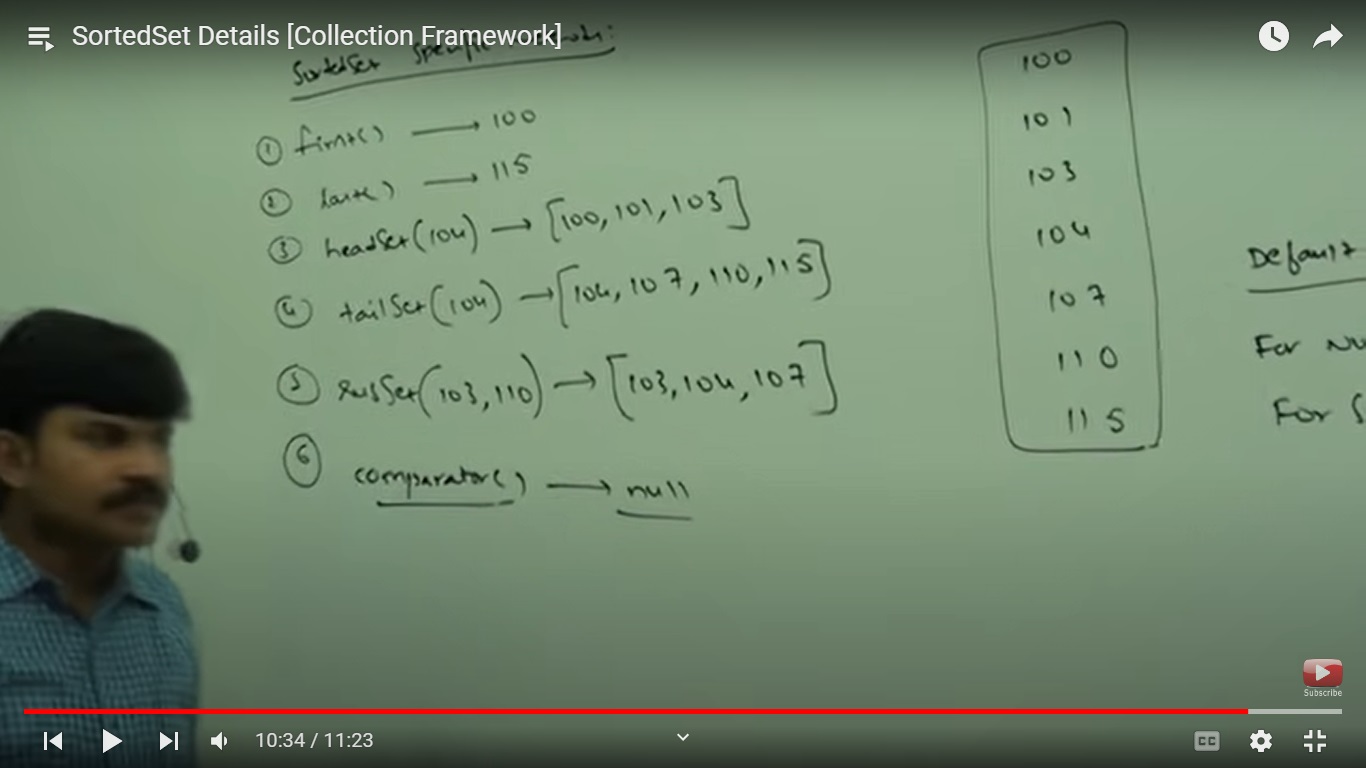 SortedSet Details [Collection Framework]
SortedSet Specific
① first() → 100
② last() → 115
③ headSet(104) → [100, 101, 103]
④ tailSet(104) → [104, 107, 110, 115]
⑤ subSet(103, 110) → [103, 104, 107]
⑥ comparator() → null
100
101
103
104
107
110
115
Default
For Nu
For S
Subscribe
10:34 / 11:23
CC